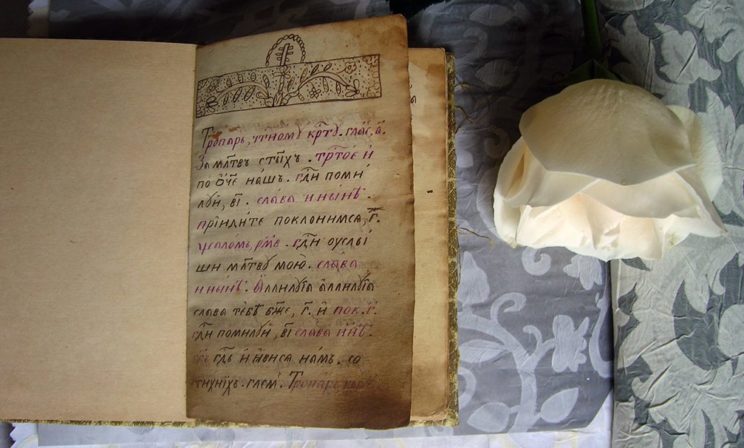 Тропарь, чтⷭ҇ному крⷭ҇ту. гла́с, а҃.
За мл҃твъ ст҃ы́хъ. трⷭ҇тое и
по о҆́ч҃е нашъ. гдⷭ҇и поми
лꙋй, в҃і. слава и нн҃ѣ.
прїидите поклонимсѧ, г҃.
ѱаломъ, рм҃в. гдⷭ҇и оуслы
ши мл҃твꙋ мою̀. слава
и нн҃ѣ. аллилꙋїа аллилꙋїа
слава тебѣ бж҃е, г҃. и пок. г҃.
гдⷭ҇и помилꙋй, в҃і слава и нн҃ѣ.
гдⷭ҇ь и ꙗвисѧ намъ. со
стихи гл҃ем. Тропарь